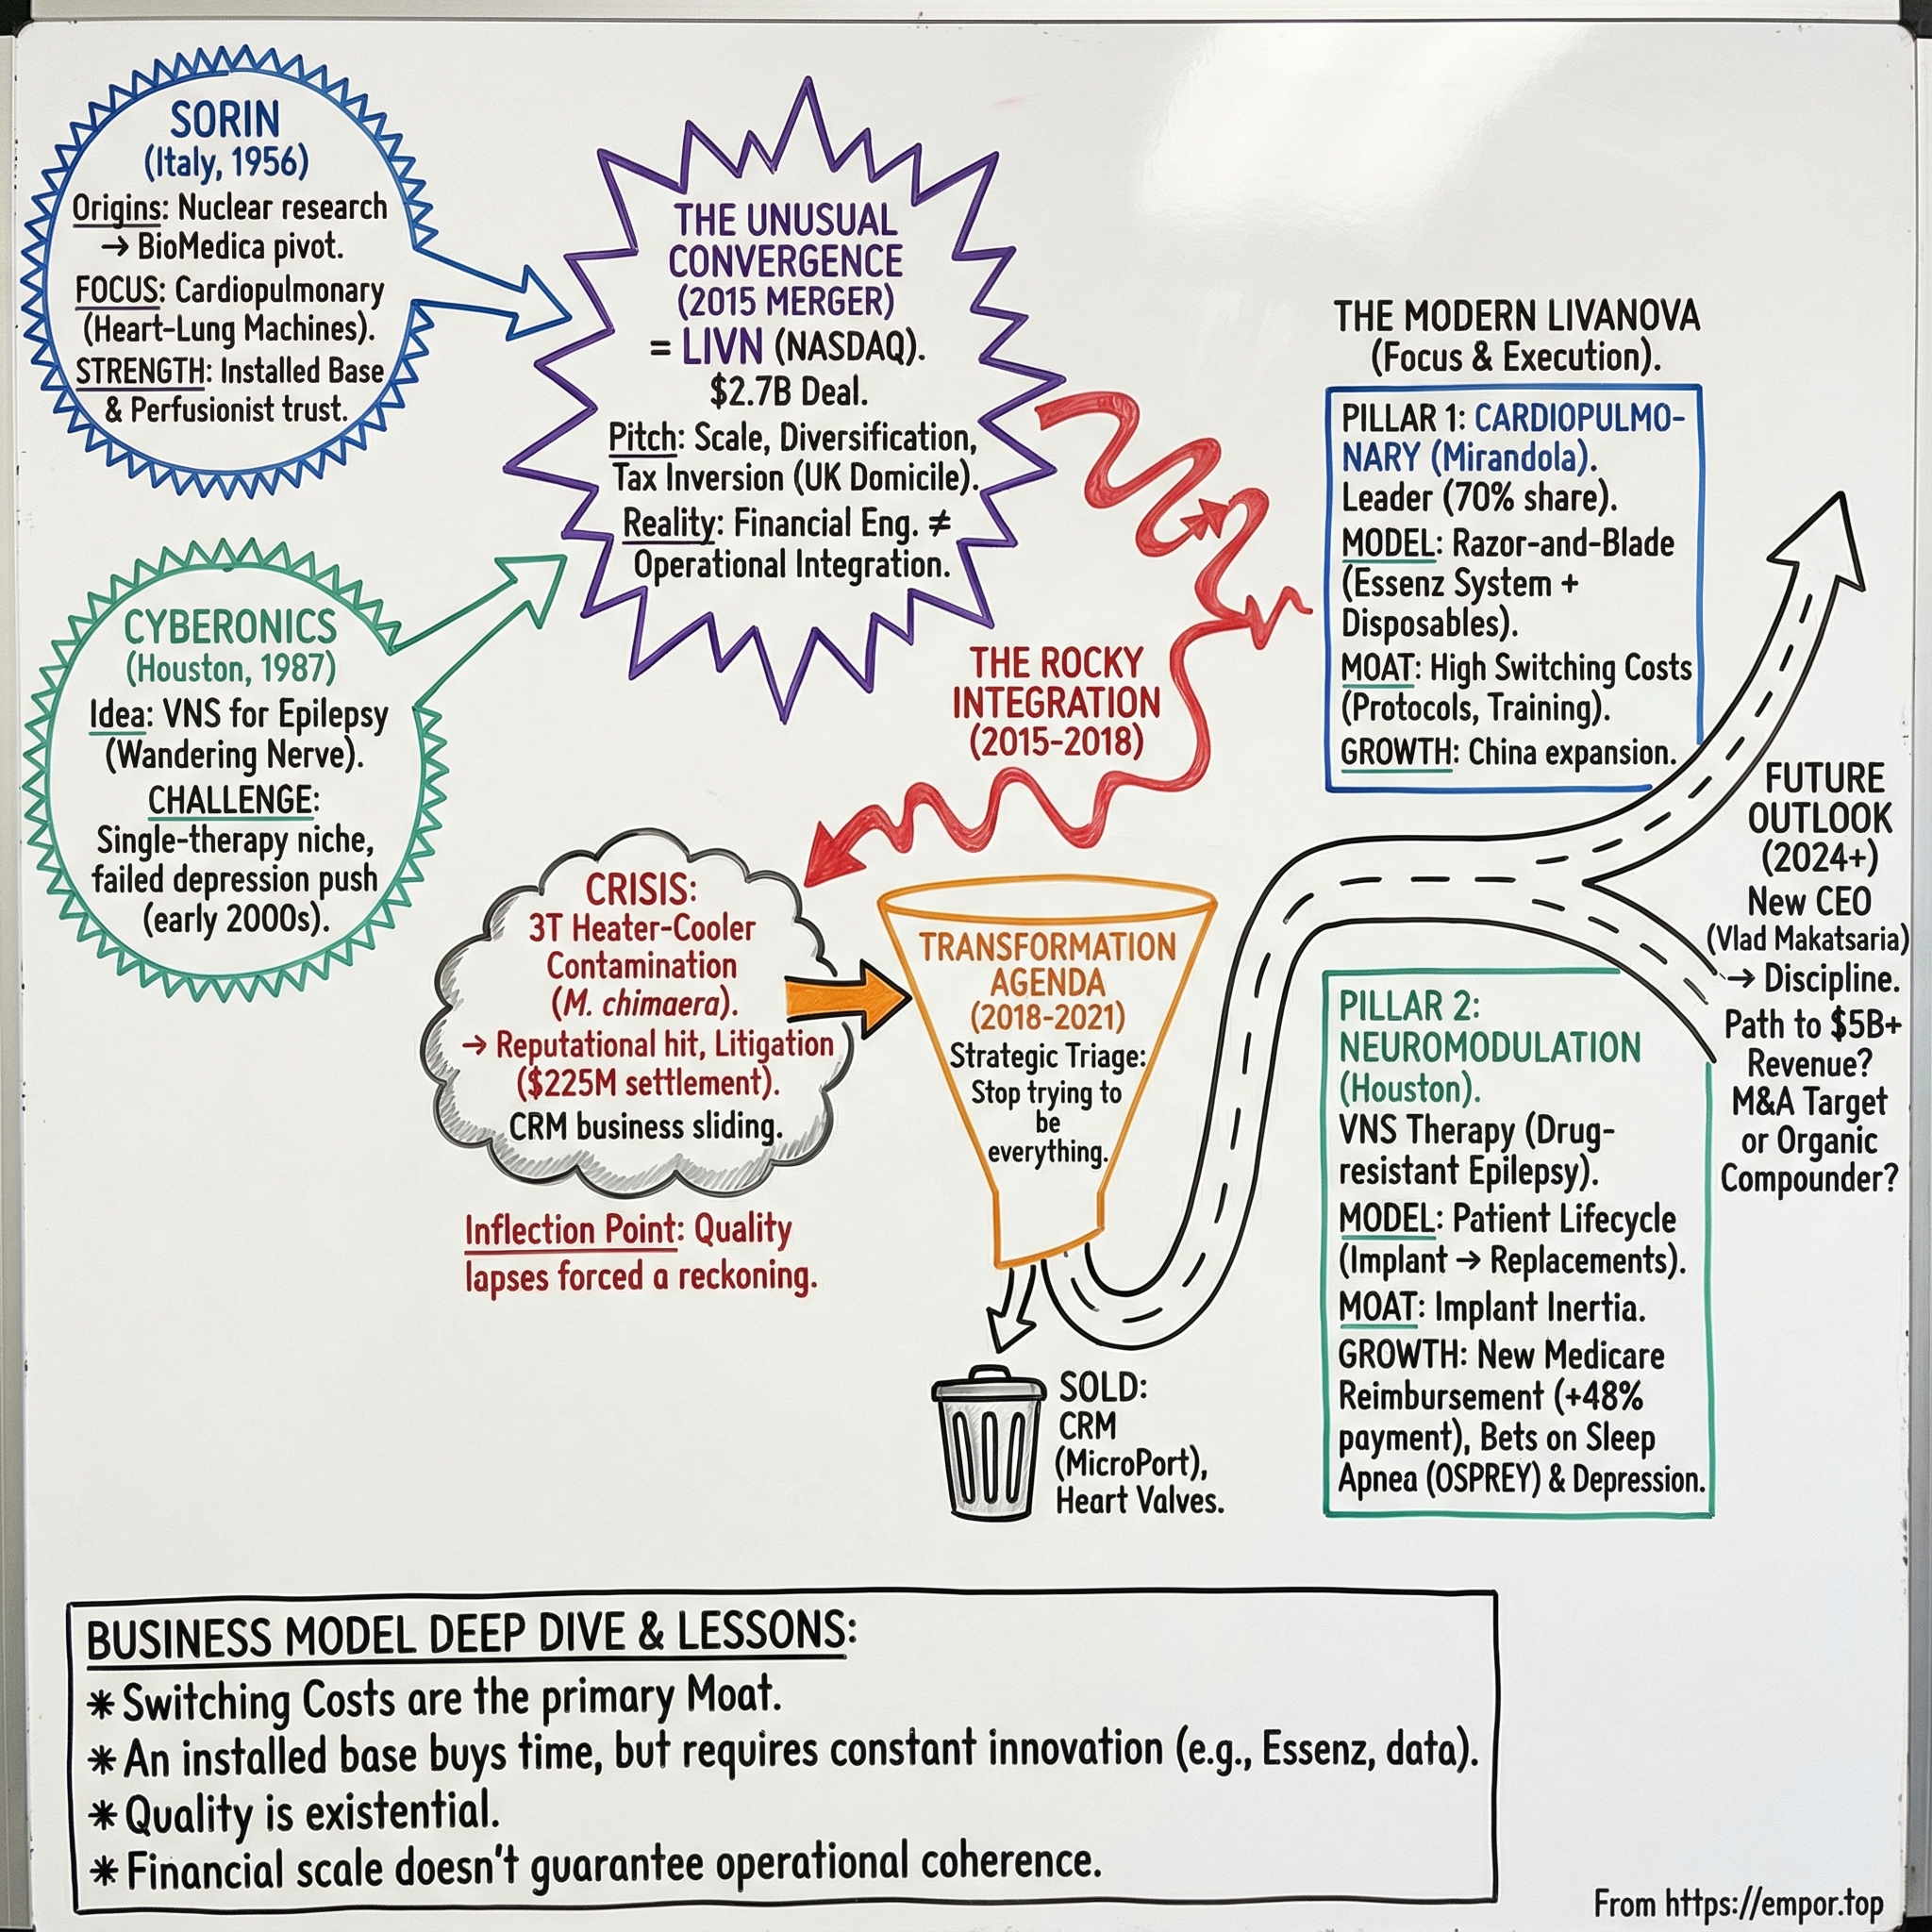 SORIN
(Italy, 1956)
Origins: Nuclear research
→ BioMedica pivot.
FOCUS: Cardiopulmonary
(Heart-Lung Machines).
STRENGTH: Installed Base
& Perfusionist trust.
CYBERONICS
(Houston, 1987)
Idea: VNS for Epilepsy
(Wandering Nerve).
CHALLENGE:
Single-therapy niche,
failed depression push
(early 2000s).
THE UNUSUAL
CONVERGENCE
(2015 MERGER)
= LIVN (NASDAQ).
$2.7B Deal.
Pitch: Scale, Diversification,
Tax Inversion (UK Domicile).
Reality: Financial Eng. ≠
Operational Integration.
THE ROCKY
INTEGRATION
(2015-2018)
CRISIS:
3T Heater-Cooler
Contamination
(M. chimaera).
→ Reputational hit, Litigation
($225M settlement).
CRM business sliding.
Inflection Point: Quality
lapses forced a reckoning.
TRANSFORMATION
AGENDA
(2018-2021)
Strategic Triage:
Stop trying to
be
everything.
SOLD:
CRM
(MicroPort),
Heart Valves.
THE MODERN LIVANOVA
(Focus & Execution).
PILLAR 1: CARDIOPULMO-
NARY (Mirandola).
Leader (70% share).
MODEL: Razor-and-Blade
(Essenz System +
Disposables).
MOAT: High Switching Costs
(Protocols, Training).
GROWTH: China expansion.
PILLAR 2:
NEUROMODULATION
(Houston).
VNS Therapy (Drug-
resistant Epilepsy).
MODEL: Patient Lifecycle
(Implant → Replacements).
MOAT: Implant Inertia.
GROWTH: New Medicare
Reimbursement (+48%
payment), Bets on Sleep
Apnea (OSPREY) & Depression.
FUTURE
OUTLOOK
(2024+)
New CEO
(Vlad Makatsaria)
→ Discipline.
Path to $5B+
Revenue?
M&A Target
or Organic
Compounder?
BUSINESS MODEL DEEP DIVE & LESSONS:
* Switching Costs are the primary Moat.
* An installed base buys time, but requires constant innovation (e.g., Essenz, data).
* Quality is existential.
* Financial scale doesn't guarantee operational coherence.
From https://empor.top